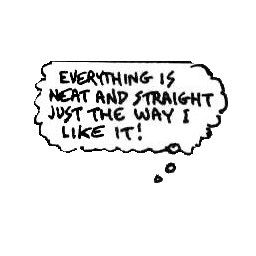 EVERYTHING IS
NEAT AND STRAIGHT
JUST THE WAY I
LIKE IT!